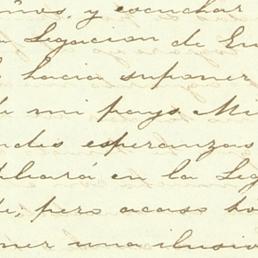 ños, y escuchar
Legacion de En
hacia suponer
de mi pays. Mi
ndes esperanzas
pliará en la Leg
de, pero acaso ha
ner una ilusio